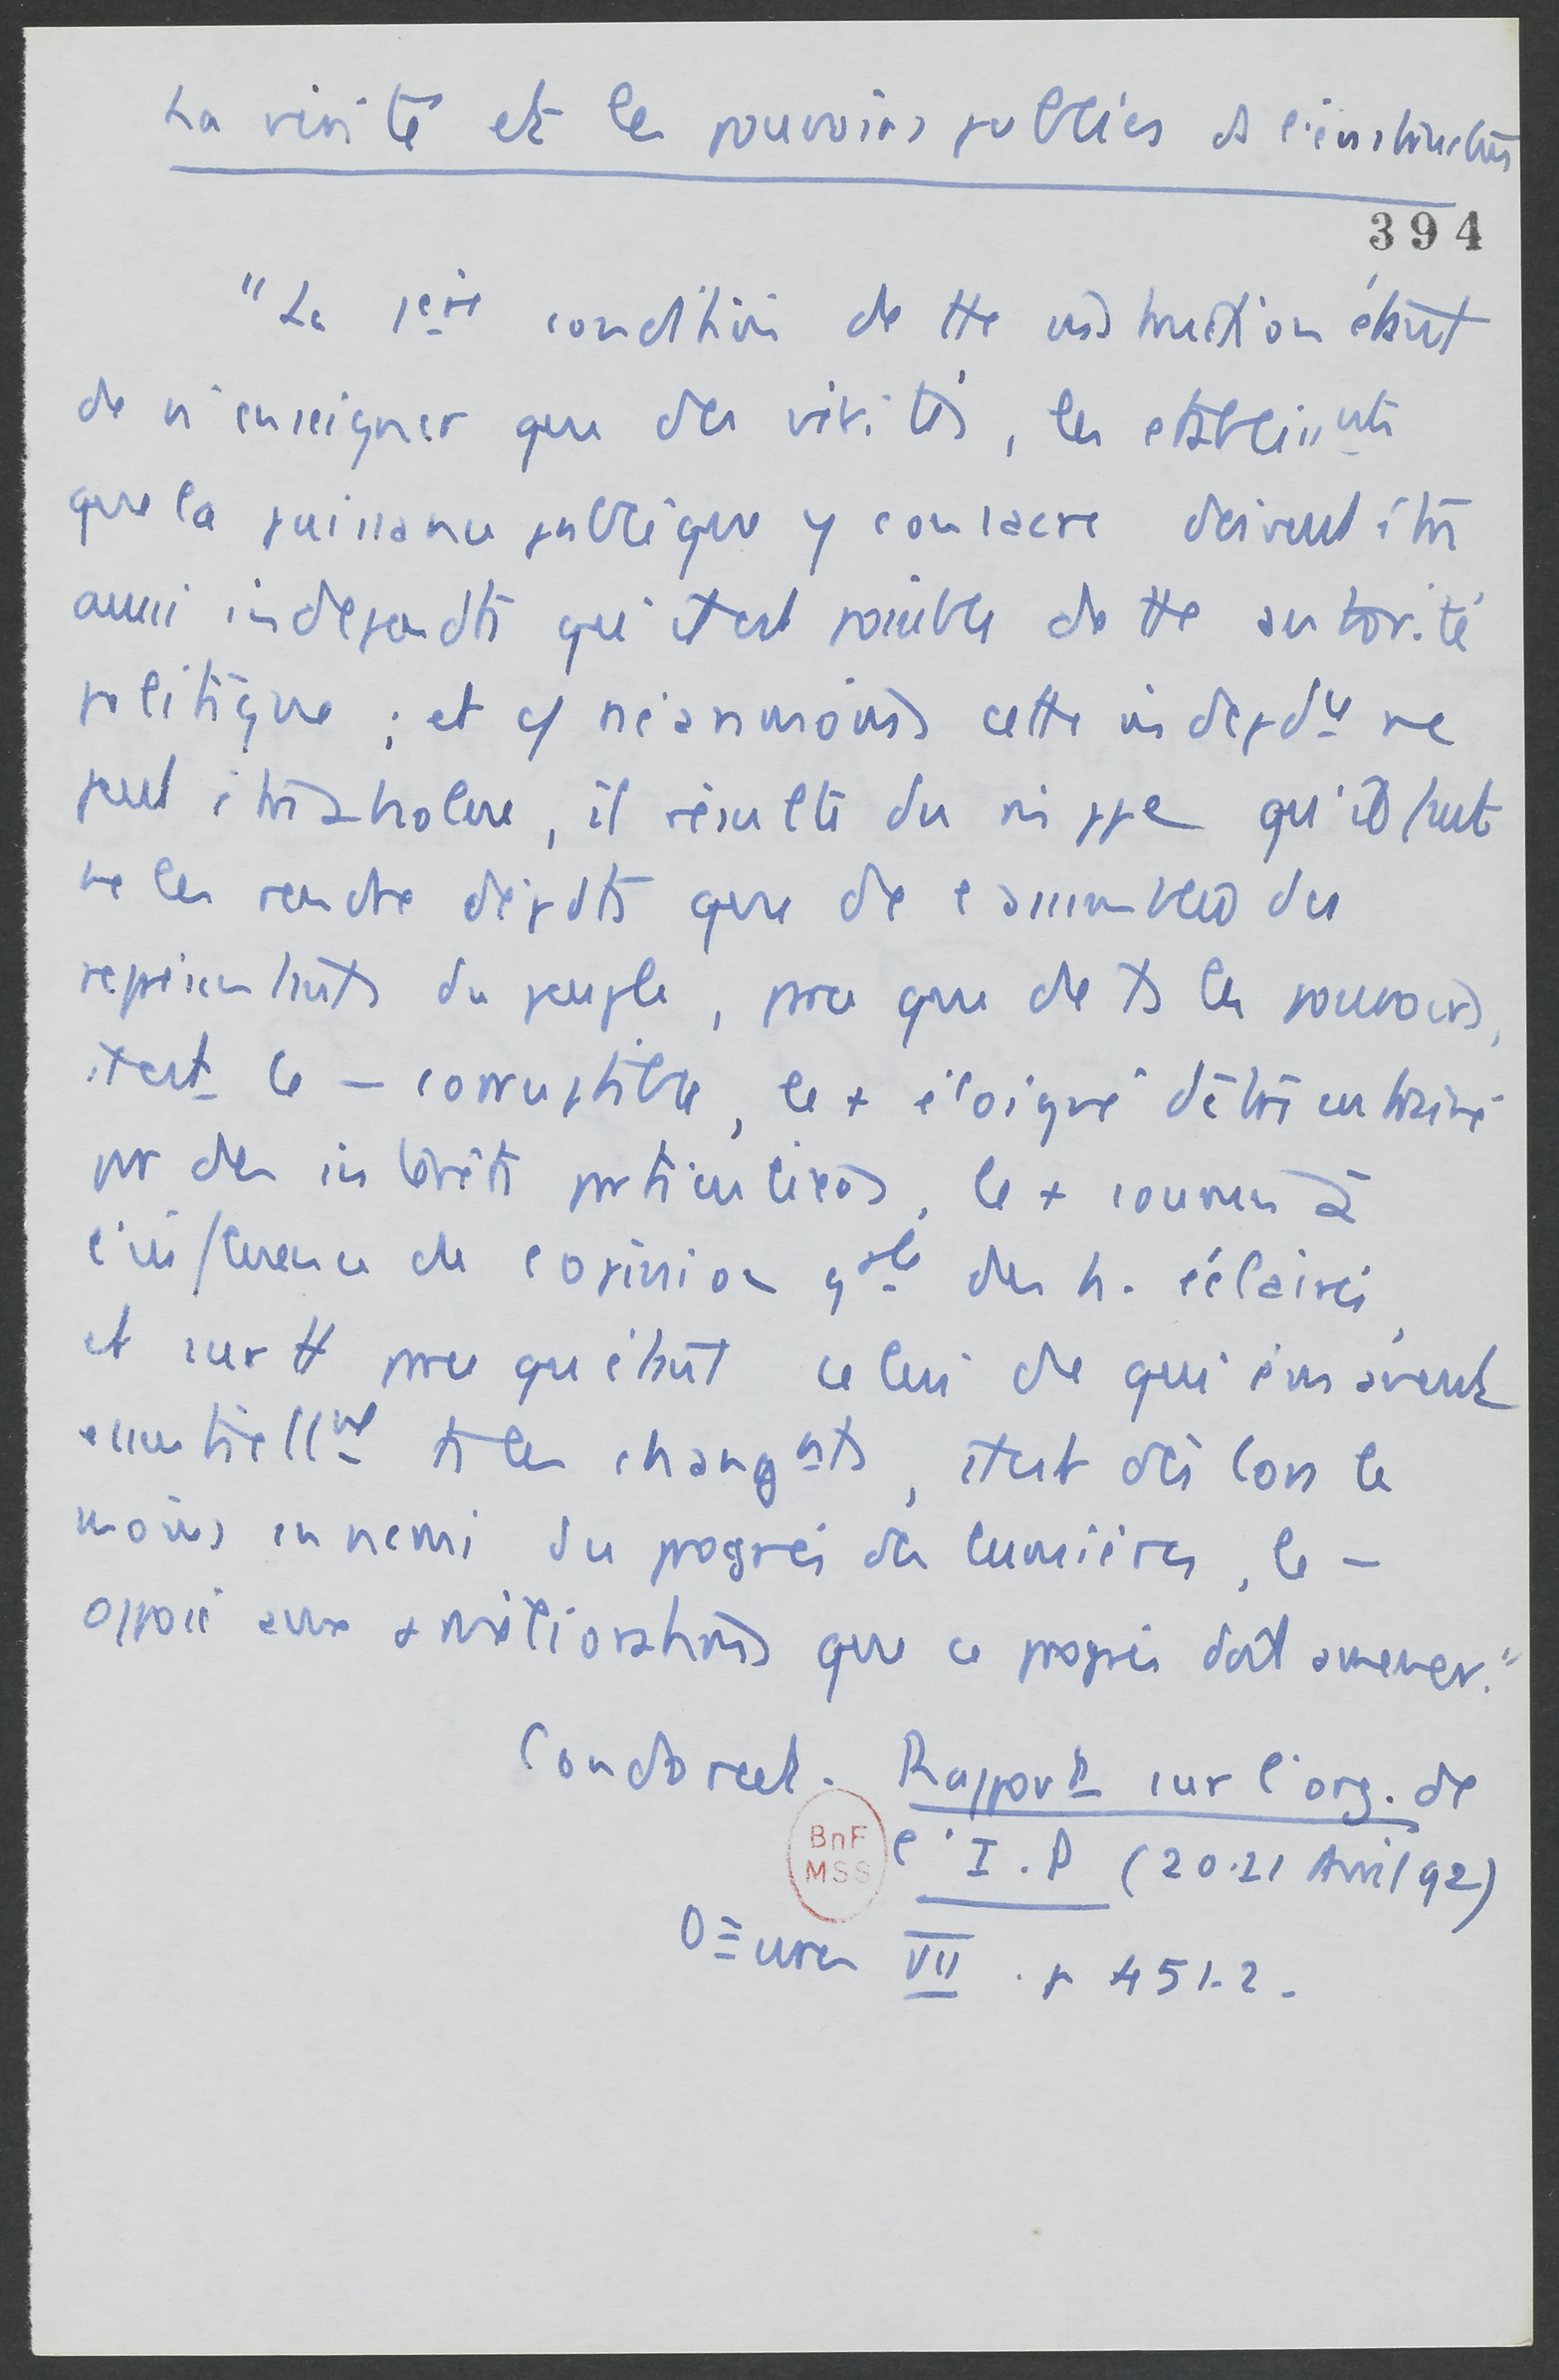 La vérité et les pouvoirs publics ds l'instruction
394
"La 1ère condition de tte instruction étant
de n'enseigner que des vérités, les établissmts
que la puissance publique y consacre doivent être
aussi indépendts qu'il est possible de tte autorité
politique ; et c/ néanmoins cette indépdce ne
peut être absolue, il résulte du m ppe qu'il faut
ne les rendre dépdts que de l'assemblée des
représentants du peuple, pce que de ts les pouvoirs,
il est le – corruptible, le + éloigné d'être entraîné
par des intérêts particuliers, le + soumis à
l'influence de l'opinion gale des h. éclairés,
et surtt pce qu'étant celui de qui émanent
essentiellmt ts les changmts, il est dès lors le
moins ennemi du progrès des lumières, le –
opposé aux améliorations que ce progrès doit amener."
Condorcet. Rapport sur l'org. de
l'I.P (20.21 Avril 92)
BnF
MSS
Œuvres VII . p 451-2.